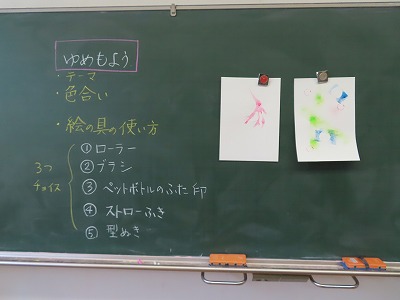 ゆめもよう
・テーマ
・色合い
・絵の具の使い方
3つ
チョイス
①ローラー
②ブラシ
③ペットボトルのふた印
④ストローふき
⑤型ぬき